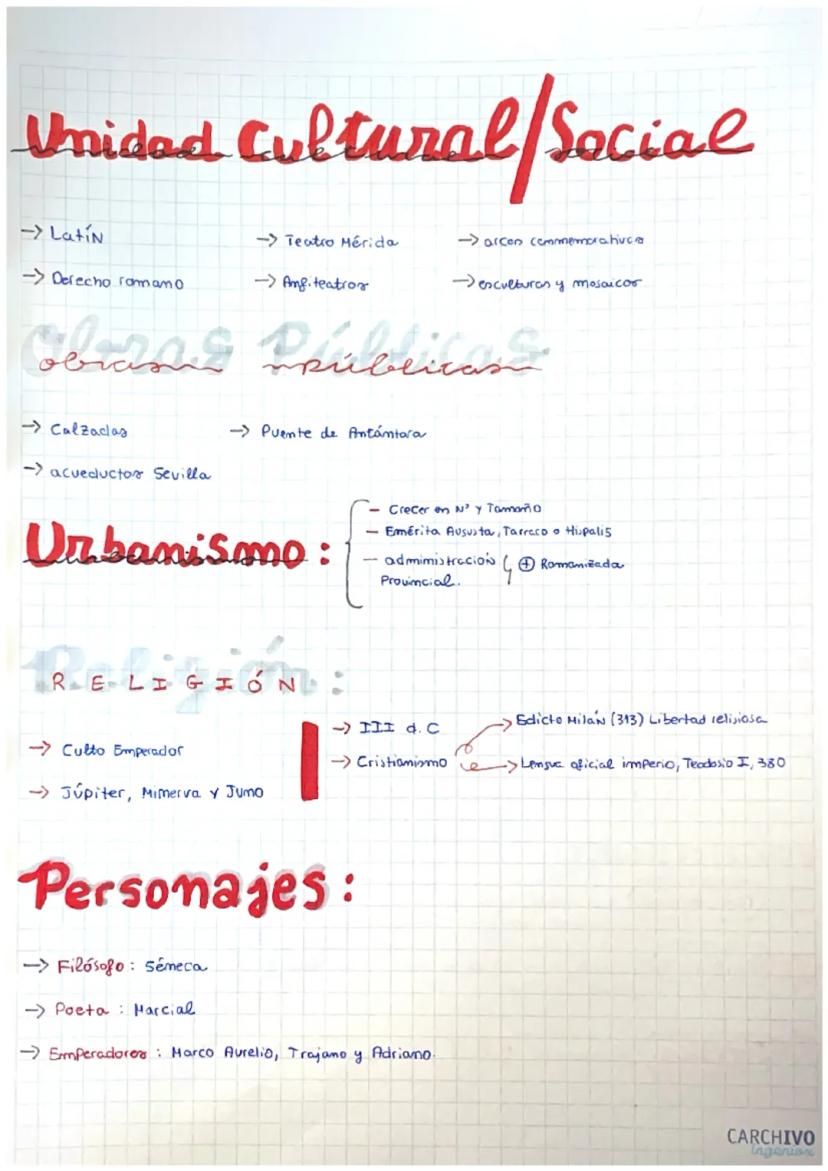 Unidad Cultural/Social
→ Latín → Teatro Mérida → arcos commemorativos
→ Derecho romano → Anfiteatros → esculturas y mosaicos
Obras Públicas
obras públicas
→ Calzadas → Puente de Antántara
→ acueductos Sevilla
Urbanismo:
- Crecer en Nº y Tamaño
- Emérita Augusta, Tarraco o Hispalis
- administración ⊕ Romanizada
Provincial.
Religión:
RELIGIÓN
→ III d.C → Edicto Milán (313) Libertad religiosa
→ Culto Emperador → Cristianismo → Lengua oficial imperio, Teodosio I, 380
→ Júpiter, Minerva y Juno
Personajes:
→ Filósofo: Séneca
→ Poeta: Marcial
→ Emperadores: Marco Aurelio, Trajano y Adriano.
CARCHIVO
ingeniox